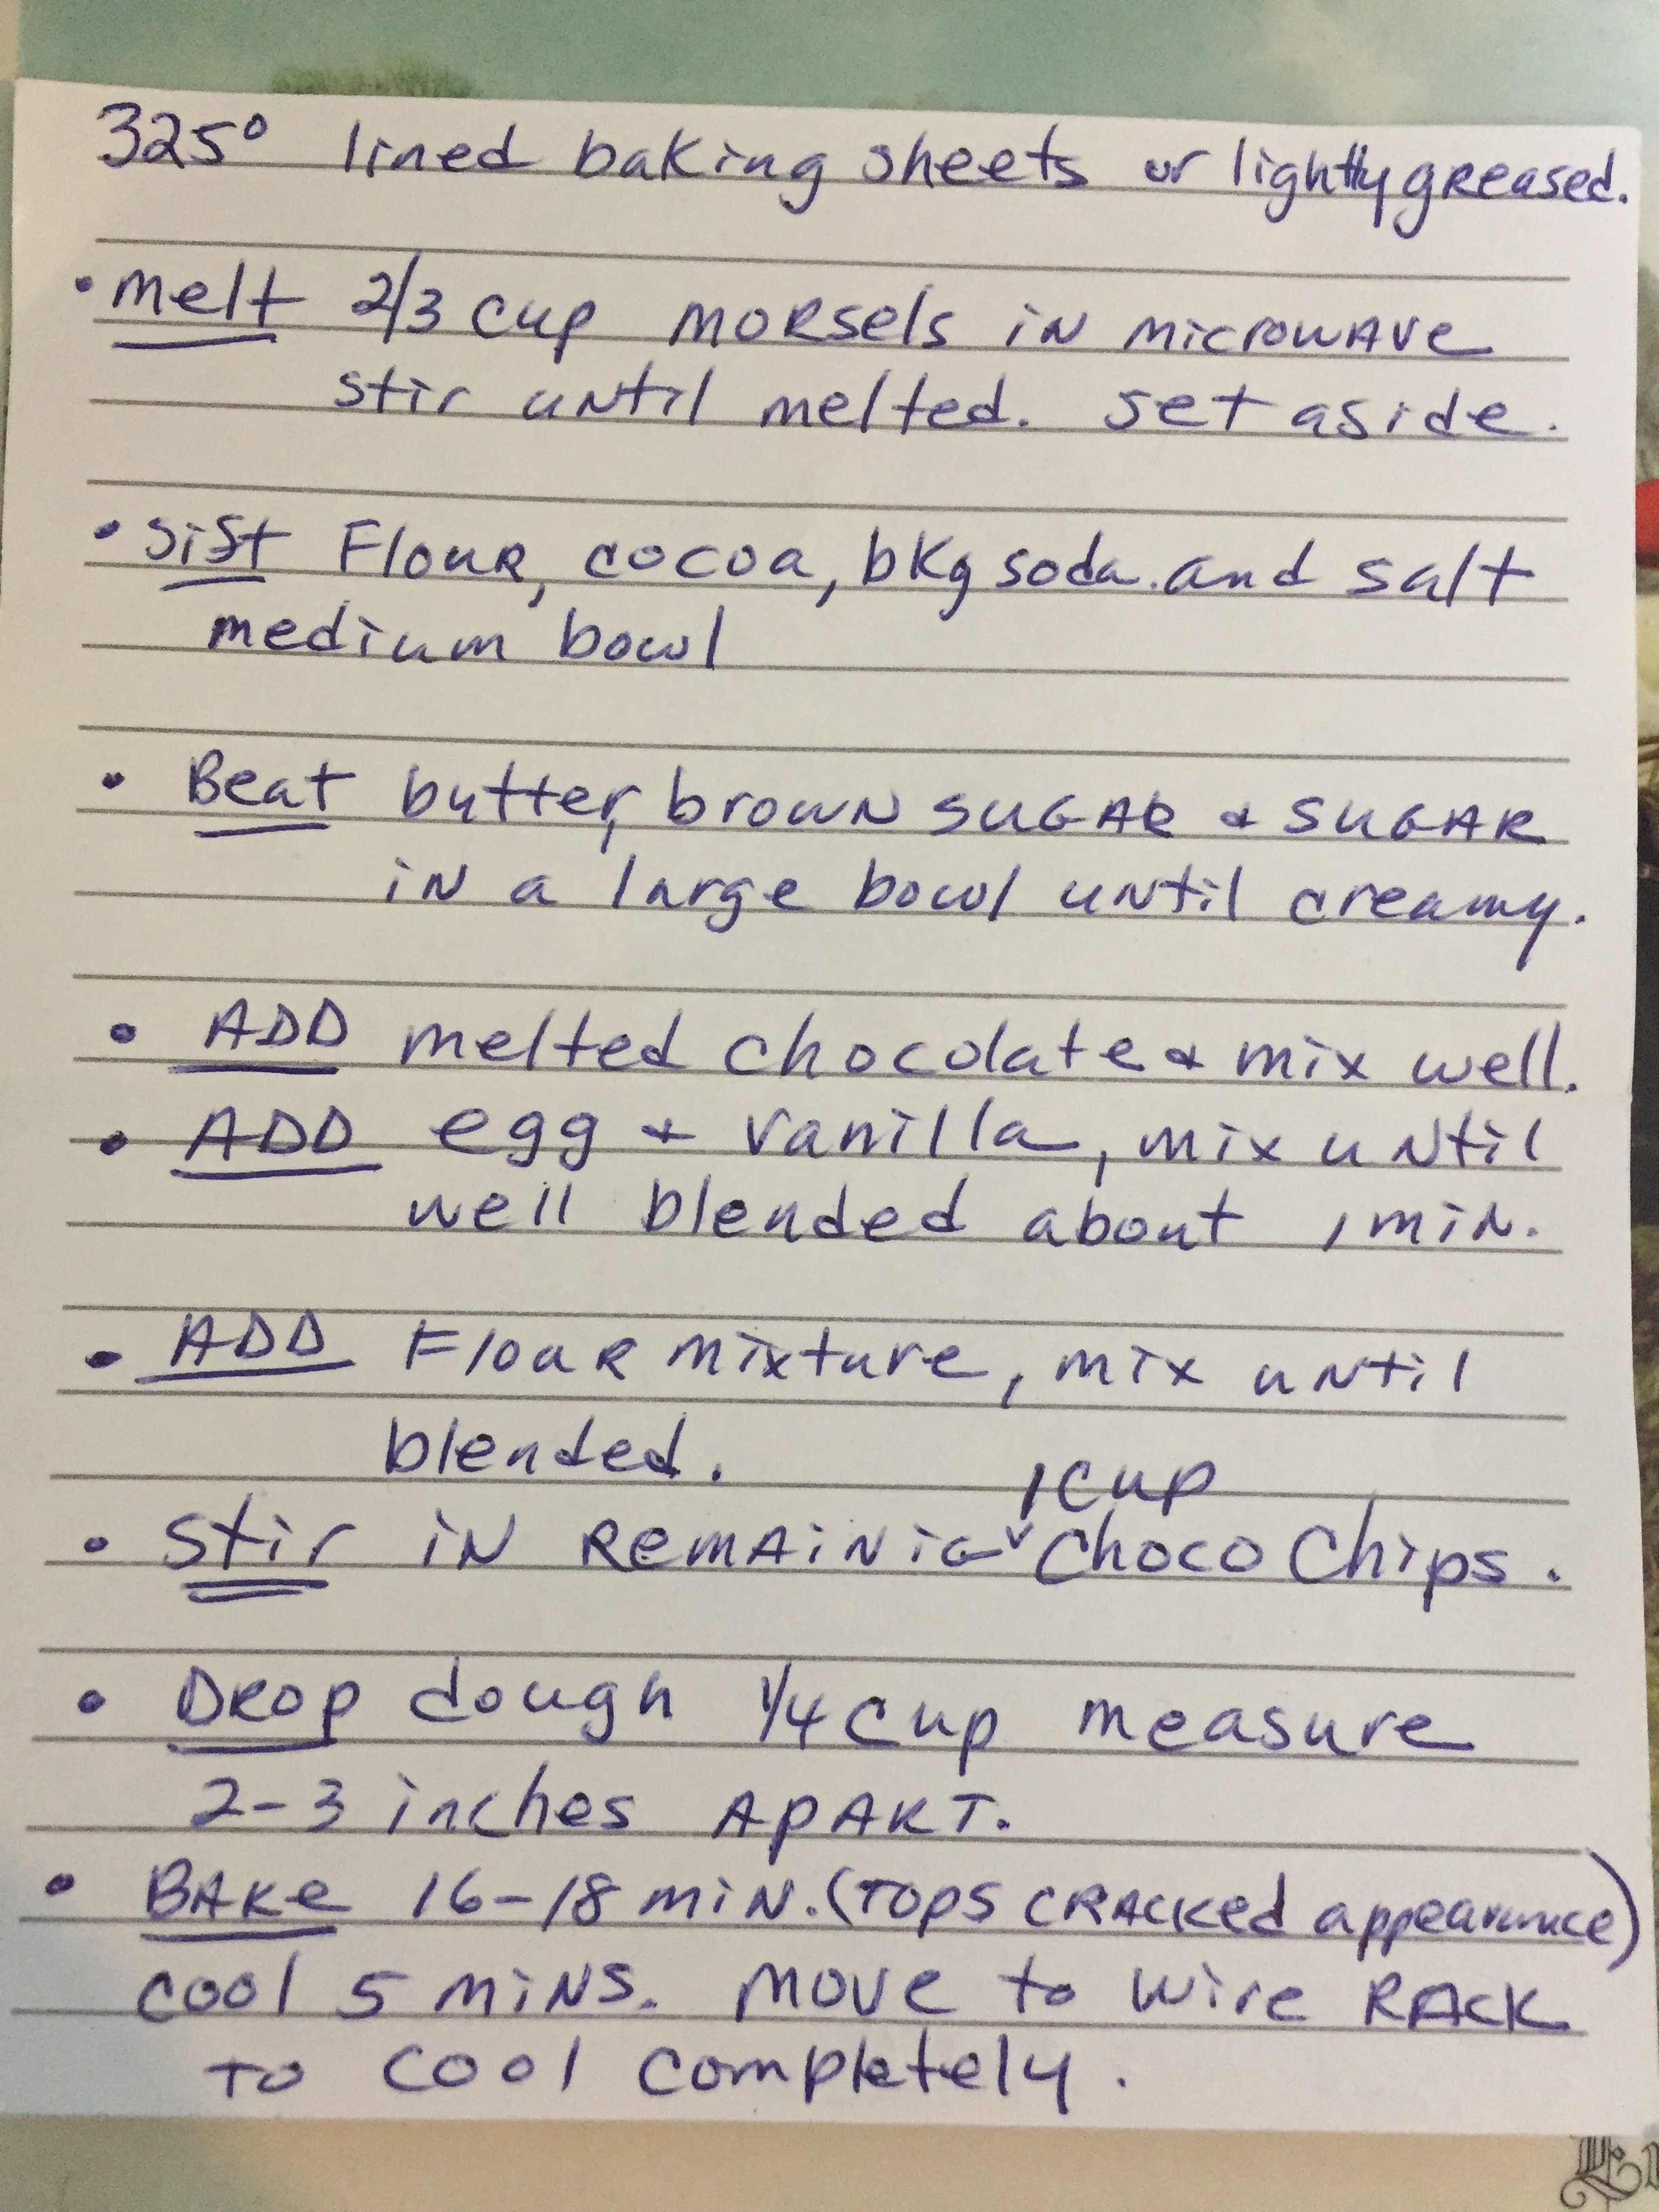 325° lined baking sheets or lightly greased.
• melt 2/3 cup morsels in microwave
stir until melted. set aside.
• sift Flour, cocoa, bkg soda and salt
medium bowl
• Beat butter, brown SUGAR & SUGAR
in a large bowl until creamy.
• ADD melted chocolate & mix well.
• ADD egg + vanilla, mix until
well blended about 1 min.
• ADD Flour mixture, mix until
blended.
1 cup
• Stir in Remainig ˅ Choco Chips.
• Drop dough 1/4 cup measure
2-3 inches APART.
• BAKe 16-18 min. (Tops CRACKed appearance)
cool 5 mins. move to wire RACK
To cool completely.